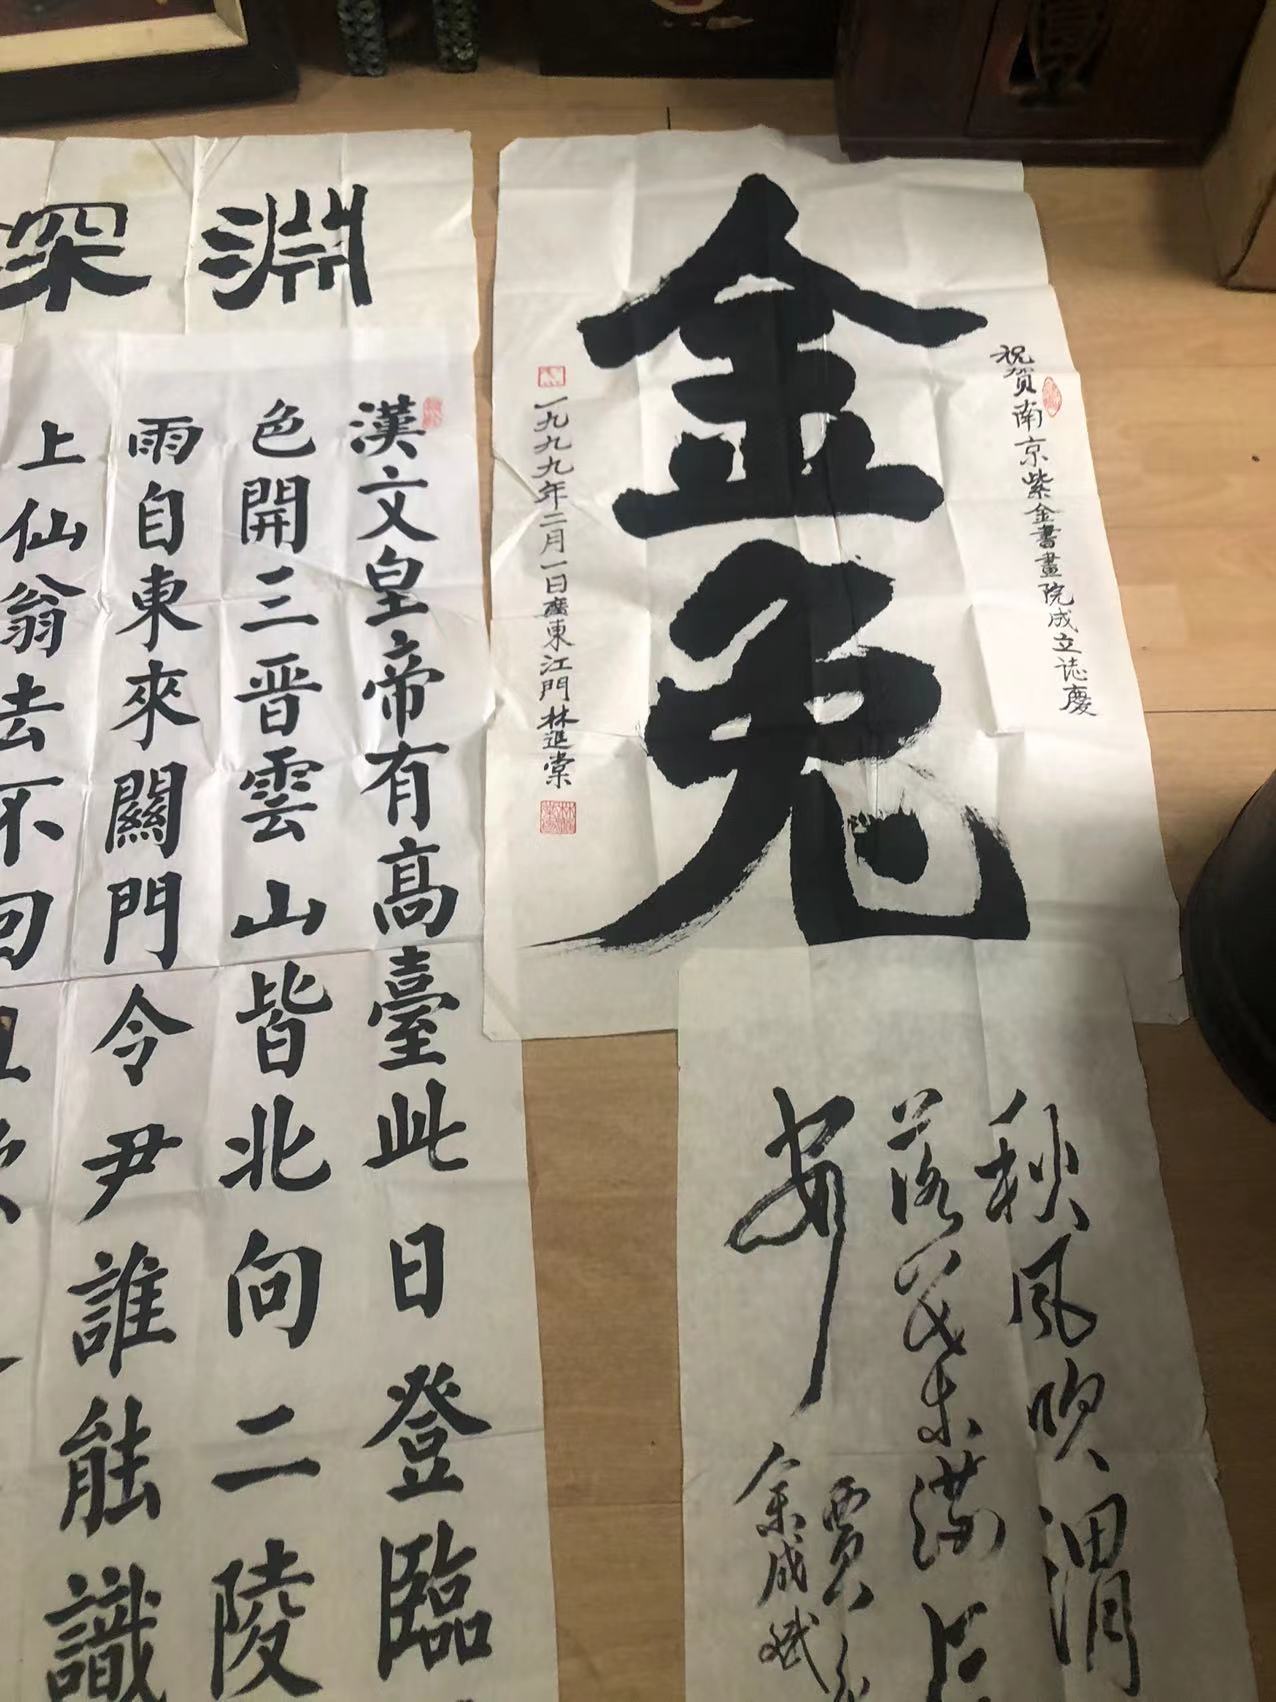 淵深
祝贺南京紫金書畫院成立誌慶
金兔
一九九九年二月一日廣東江門林進棠
漢文皇帝有高臺此日登臨
色開三晉雲山皆北向二陵
雨自東來關門令尹誰能識
上仙翁去不回
秋风吹渭
落葉滿长
安
賈
余成斌